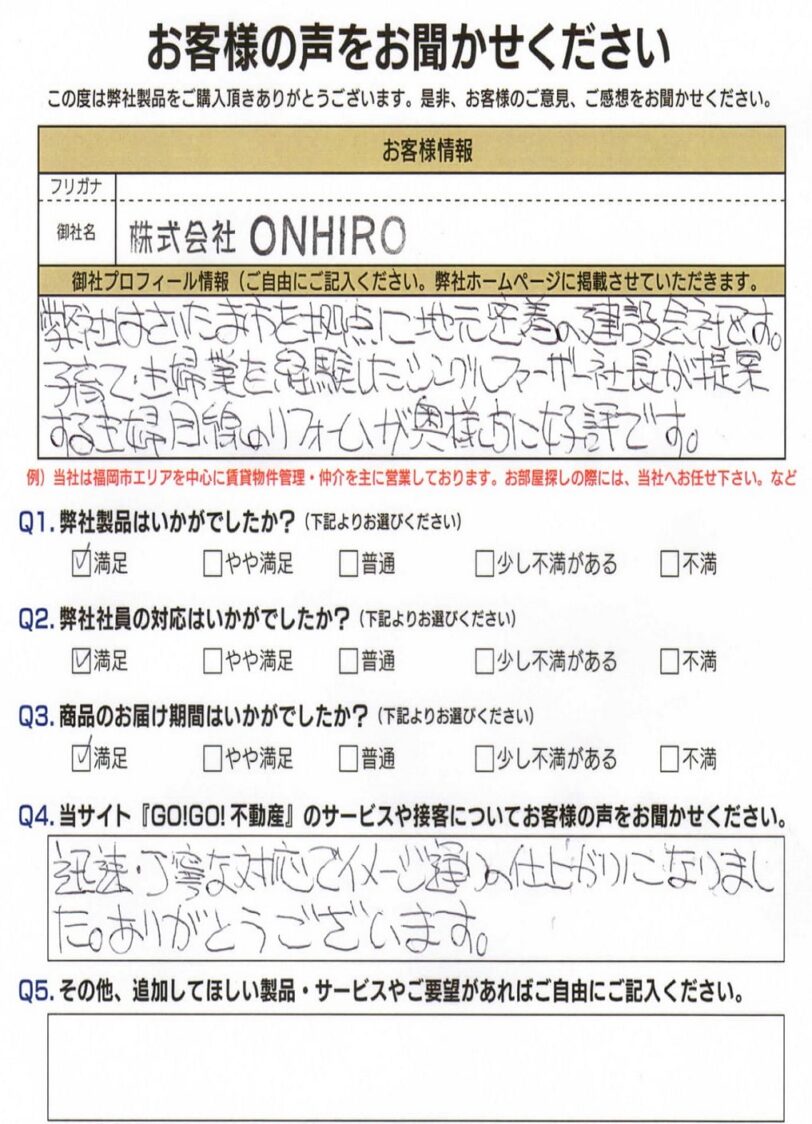 お客様の声をお聞かせください
この度は弊社製品をご購入頂きありがとうございます。是非、お客様のご意見、ご感想をお聞かせください。
お客様情報
フリガナ
御社名 株式会社 ONHIRO
御社プロフィール情報（ご自由にご記入ください。弊社ホームページに掲載させていただきます。
弊社はさいたま市を拠点に地元密着の建設会社です。
子育て・主婦業を経験したシングルファーザー社長が提案
する主婦目線のリフォームが奥様方に好評です。
例）当社は福岡市エリアを中心に賃貸物件管理・仲介を主に営業しております。お部屋探しの際には、当社へお任せ下さい。など
Q1. 弊社製品はいかがでしたか？（下記よりお選びください）
☑満足 □やや満足 □普通 □少し不満がある □不満
Q2. 弊社社員の対応はいかがでしたか？（下記よりお選びください）
☑満足 □やや満足 □普通 □少し不満がある □不満
Q3. 商品のお届け期間はいかがでしたか？（下記よりお選びください）
☑満足 □やや満足 □普通 □少し不満がある □不満
Q4. 当サイト『GO!GO!不動産』のサービスや接客についてお客様の声をお聞かせください。
迅速・丁寧な対応でイメージ通りの仕上がりになりまし
た。ありがとうございます。
Q5. その他、追加してほしい製品・サービスやご要望があればご自由にご記入ください。